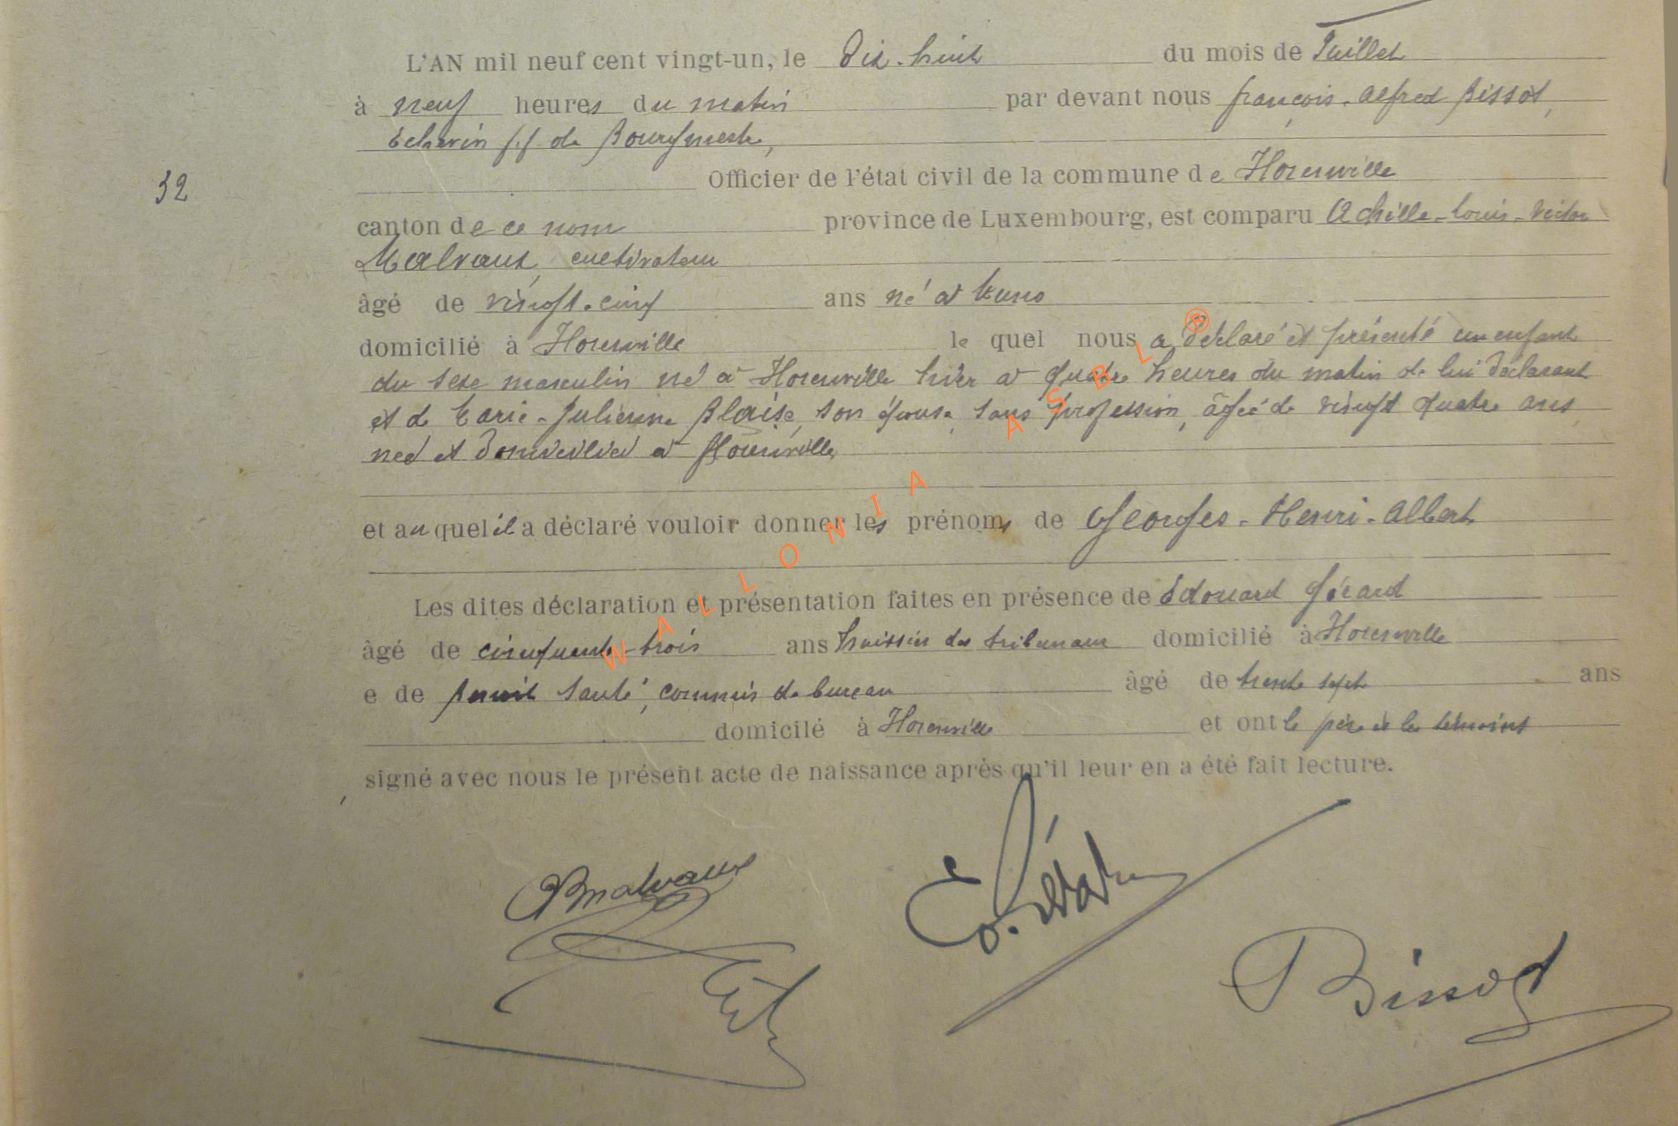 L'AN mil neuf cent vingt-un, le Dix-huit du mois de Juillet
à neuf heures du matin par devant nous françois-alfred Bissot,
Echevin f.f. de Bourgmestre,
32
Officier de l'état civil de la commune de Houffalize
canton de ce nom province de Luxembourg, est comparu Achille-Louis-Victor
Malvaux, cultivateur
âgé de vingt-cinq ans né à
domicilié à le quel nous a déclaré et présenté un enfant
du sexe masculin né à hier à quatre heures du matin de lui déclarant
et de Marie-Julienne Blaise, son épouse, sans profession, âgée de vingt quatre ans,
née et domiciliée à
et auquel il a déclaré vouloir donner les prénoms de Georges-Henri-Albert
Les dites déclaration et présentation faites en présence de Edouard Gérard
âgé de cinquante-trois ans huissier des tribunaux domicilié à
e de commis de bureau âgé de trente sept ans
domicilé à et ont le père et les témoins
signé avec nous le présent acte de naissance après qu'il leur en a été fait lecture.
Malvaux
E. Gérard
Bissot
WALLONIA ASBL ®